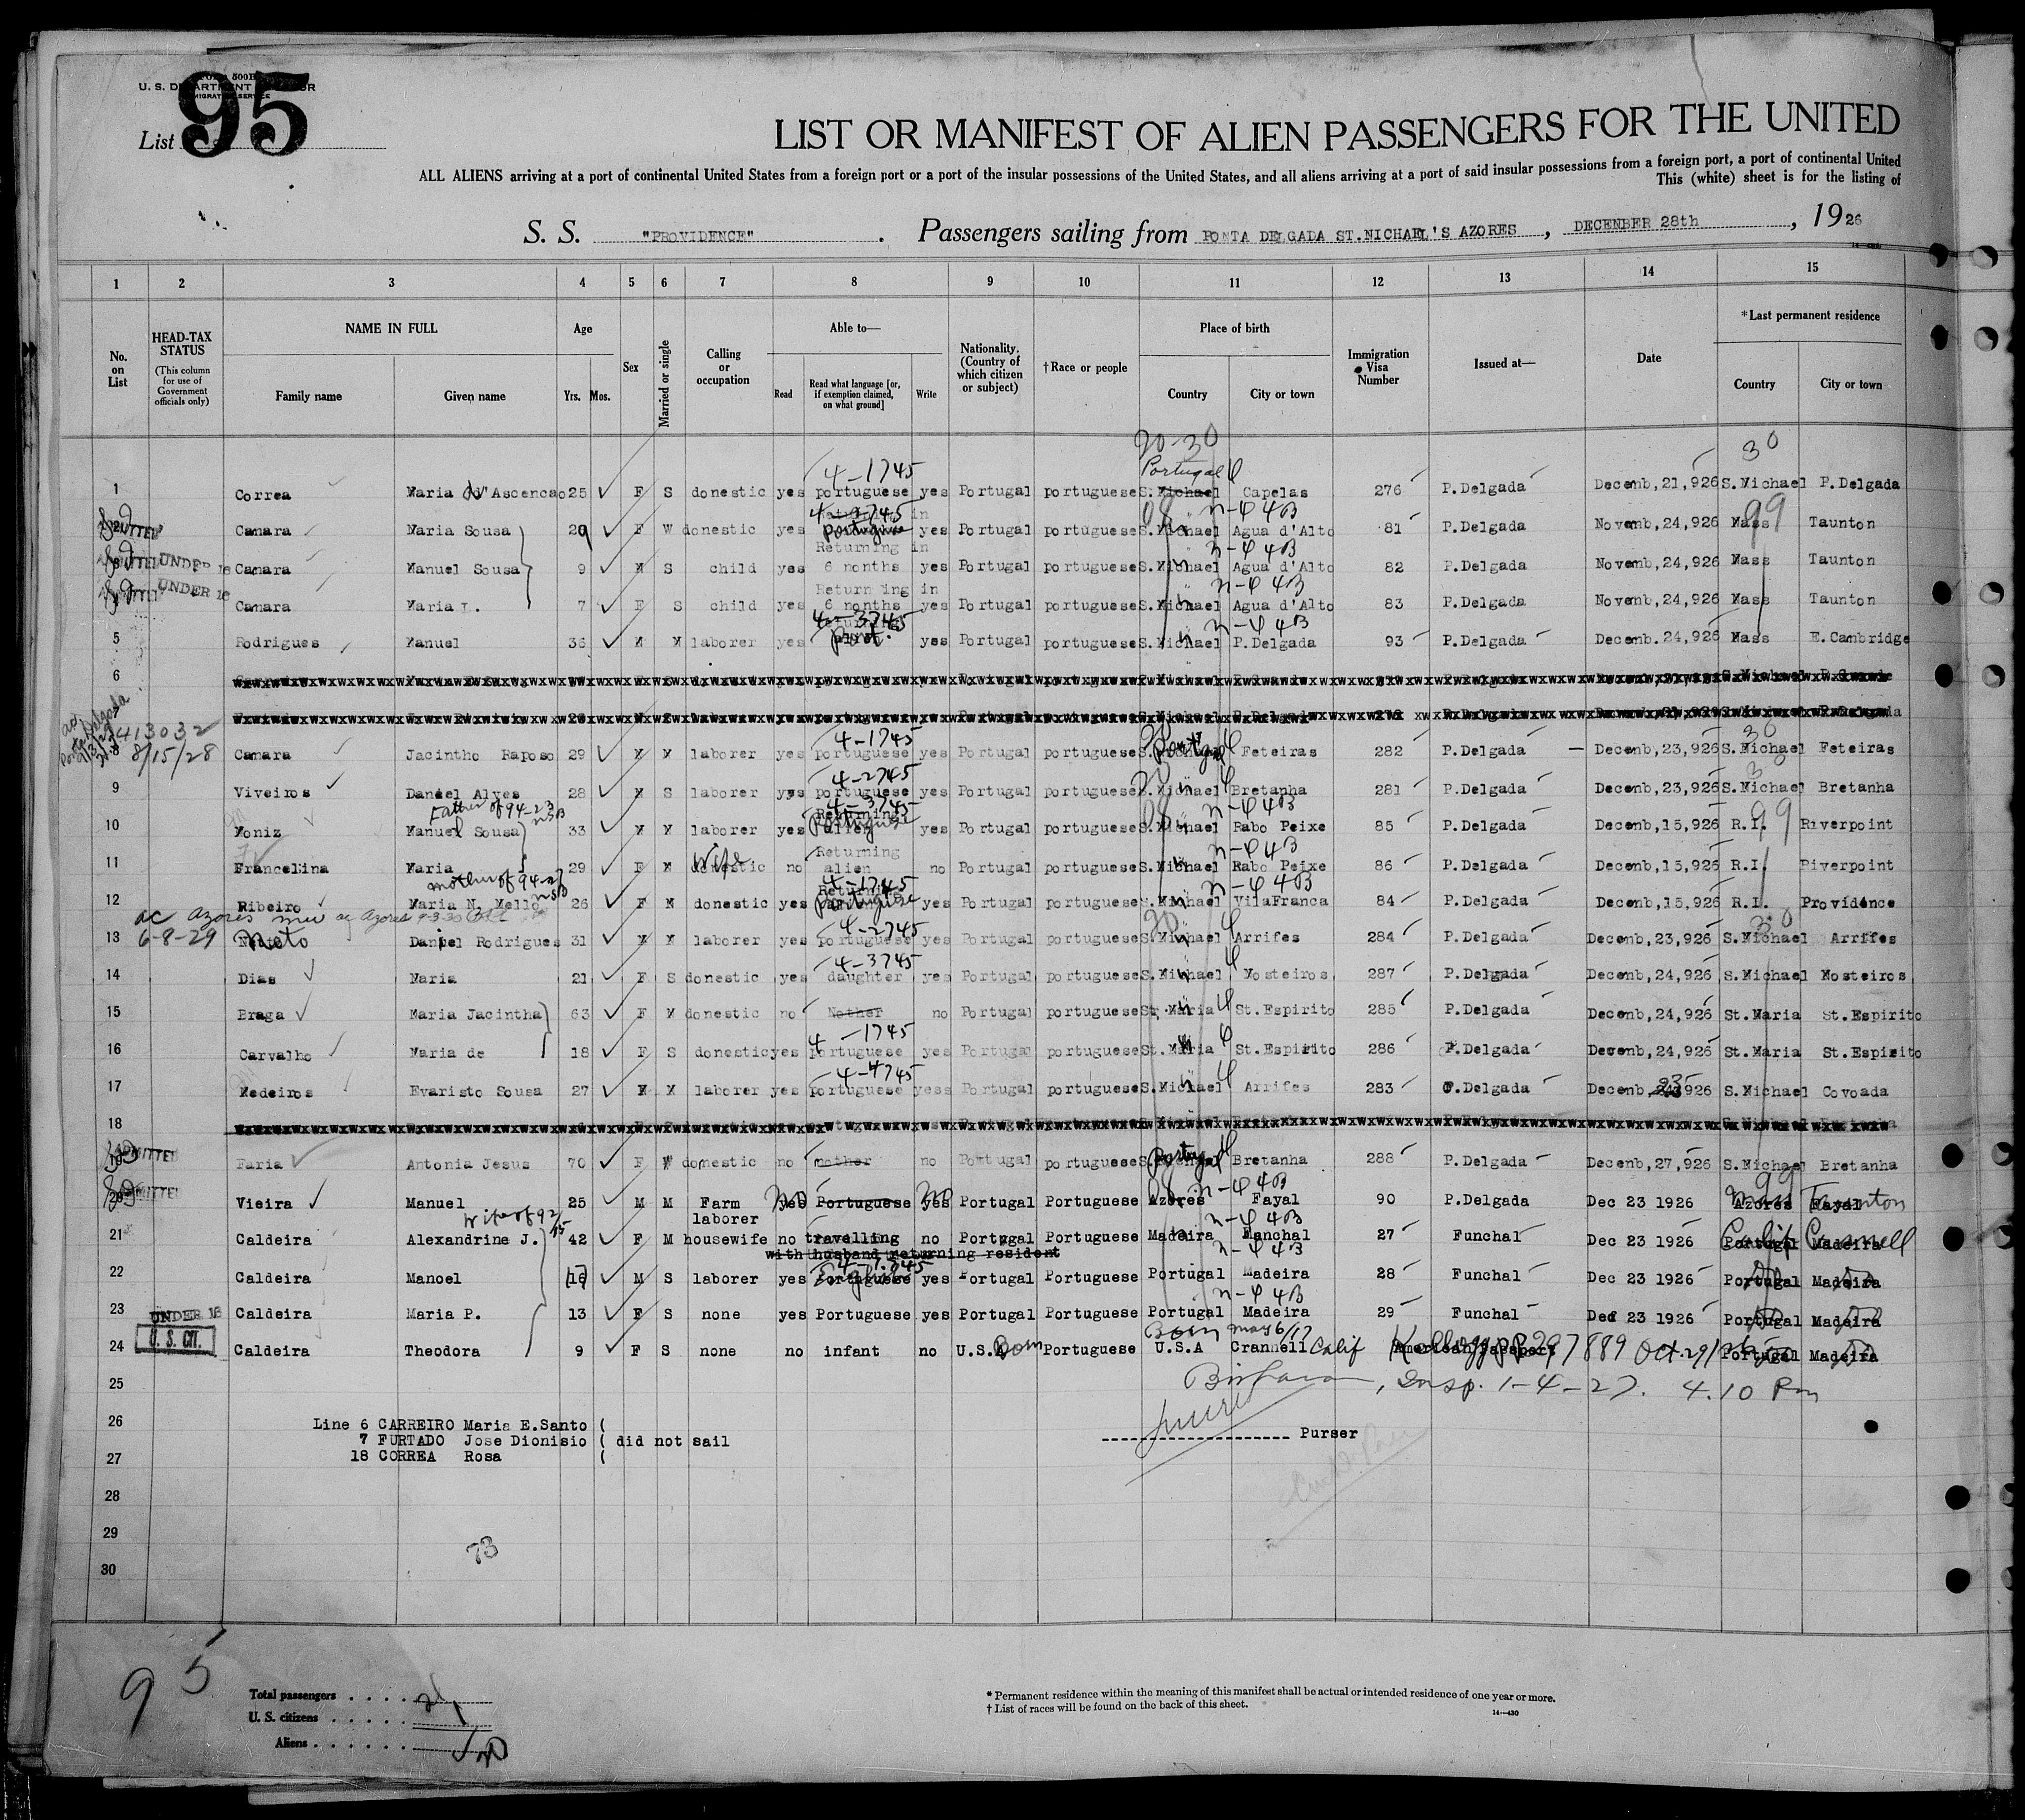 FORM 500B
U. S. DEPARTMENT OF LABOR
IMMIGRATION SERVICE
List 95
LIST OR MANIFEST OF ALIEN PASSENGERS FOR THE UNITED
ALL ALIENS arriving at a port of continental United States from a foreign port or a port of the insular possessions of the United States, and all aliens arriving at a port of said insular possessions from a foreign port, a port of continental United
This (white) sheet is for the listing of
S. S. "PROVIDENCE". Passengers sailing from PONTA DELGADA ST.MICHAEL'S AZORES, DECENBER 28th, 1926
1 2 3 4 5 6 7 8 9 10 11 12 13 14 15
No. on List
HEAD-TAX STATUS
(This column for use of Government officials only)
NAME IN FULL
Family name Given name
Age
Yrs. Mos.
Sex
Married or single
Calling or occupation
Able to—
Read Read what language [or, if exemption claimed, on what ground] Write
Nationality. (Country of which citizen or subject)
†Race or people
Place of birth
Country City or town
Immigration Visa Number
Issued at—
Date
*Last permanent residence
Country City or town
20-30 30
4-1745 Portugal
1 Correa Maria d'Ascencao 25 F S donestic yes portuguese yes Portugal portuguese S.Michael Capelas 276 P.Delgada Decenb,21,926 S.Michael P.Delgada
4-3745 n-4 4B 99
2 Camara Maria Sousa 29 F W donestic yes Portuguese yes Portugal portuguese S.Michael Agua d'Alto 81 P.Delgada Novenb,24,926 Mass Taunton
Returning in n-4 4B
3 UNDER 16 Camara Manuel Sousa 9 M S child yes 6 nonths yes Portugal portuguese S.Michael Agua d'Alto 82 P.Delgada Novenb,24,926 Mass Taunton
Returning in n-4 4B
4 UNDER 16 Camara Maria L. 7 F S child yes 6 nonths yes Portugal portuguese S.Michael Agua d'Alto 83 P.Delgada Novenb,24,926 Mass Taunton
4-3745 n-4 4B
5 Rodrigues Manuel 36 M M laborer yes Port. yes Portugal portuguese S.Michael P.Delgada 93 P.Delgada Decenb.24,926 Mass E.Cambridge
6
413032
4-1745 30
8 8/15/28 Camara Jacintho Raposo 29 M M laborer yes portuguese yes Portugal portuguese Portugal Feteiras 282 P.Delgada Decenb,23,926 S.Michael Feteiras
4-2745
9 Viveiros Daniel Alves 28 M S laborer yes portuguese yes Portugal portuguese S.Michael Bretanha 281 P.Delgada Decenb,23,926 S.Michael Bretanha
Father of 94-23 4-3745 n-4 4B 99
10 Moniz Manuel Sousa 33 M M laborer yes Portuguese yes Portugal portuguese S.Michael Rabo Peixe 85 P.Delgada Decenb,15,926 R.I. Riverpoint
Wife Returning n-4 4B
11 Francelina Maria 29 F M donestic no alien no Portugal portuguese S.Michael Rabo Peixe 86 P.Delgada Decenb,15,926 R.I. Riverpoint
mother of 94-27 4-1745 n-4 4B
12 Ribeiro Maria N. Mello 26 F M donestic yes Portuguese yes Portugal portuguese S.Michael VilaFranca 84 P.Delgada Decenb,15,926 R.I. Providence
4-2745 30
13 6-8-29 Neto Daniel Rodrigues 31 M M laborer yes portuguese yes Portugal portuguese S.Michael Arrifes 284 P.Delgada Decenb,23,926 S.Michael Arrifes
4-3745
14 Dias Maria 21 F S donestic yes daughter yes Portugal portuguese S.Michael Mosteiros 287 P.Delgada Decenb,24,926 S.Michael Mosteiros
15 Braga Maria Jacintha 63 F M donestic no Mother no Portugal portuguese St.Maria St.Espirito 285 P.Delgada Decenb,24,926 St.Maria St.Espirito
4-1745
16 Carvalho Maria de 18 F S donestic yes portuguese yes Portugal portuguese St.Maria St.Espirito 286 P.Delgada Decenb,24,926 St.Maria St.Espirito
4-4745
17 Medeiros Evaristo Sousa 27 M M laborer yes portuguese yes Portugal portuguese S.Michael Arrifes 283 P.Delgada Decenb,23,926 S.Michael Covoada
18
ADMITTED
19 Faria Antonia Jesus 70 F W domestic no mother no Portugal portuguese Portugal Bretanha 288 P.Delgada Decenb,27,926 S.Michael Bretanha
ADMITTED n-4 4B 99
20 Vieira Manuel 25 M M Farm laborer no Portuguese no Portugal Portuguese Azores Fayal 90 P.Delgada Dec 23 1926 Mass Taunton
Wife of 92/15 n-4 4B
21 Caldeira Alexandrine J. 42 F M housewife no travelling no Portugal Portuguese Madeira Manchal 27 Funchal Dec 23 1926 Calif Crannell
with husband returning resident n-4 4B
22 Caldeira Manoel 17 M S laborer yes English yes Portugal Portuguese Portugal Madeira 28 Funchal Dec 23 1926 Portugal Madeira
n-4 4B
23 UNDER 16 Caldeira Maria P. 13 F S none yes Portuguese yes Portugal Portuguese Portugal Madeira 29 Funchal Dec 23 1926 Portugal Madeira
U. S. CIT. Born May 6/17
24 Caldeira Theodora 9 F S none no infant no U.S.A Born Portuguese U.S.A Crannell Calif American Passport 297889 Oct. 29/26 Portugal Madeira
25 Insp. 1-4-27. 4.10 Pm
26 Line 6 CARREIRO Maria E.Santo (
7 FURTADO Jose Dionisio ( did not sail Purser
27 18 CORREA Rosa (
28
29
73
30
95
Total passengers . . . . 21
U. S. citizens . . . . . 1
Aliens . . . . . . 20
* Permanent residence within the meaning of this manifest shall be actual or intended residence of one year or more.
† List of races will be found on the back of this sheet.
14—430